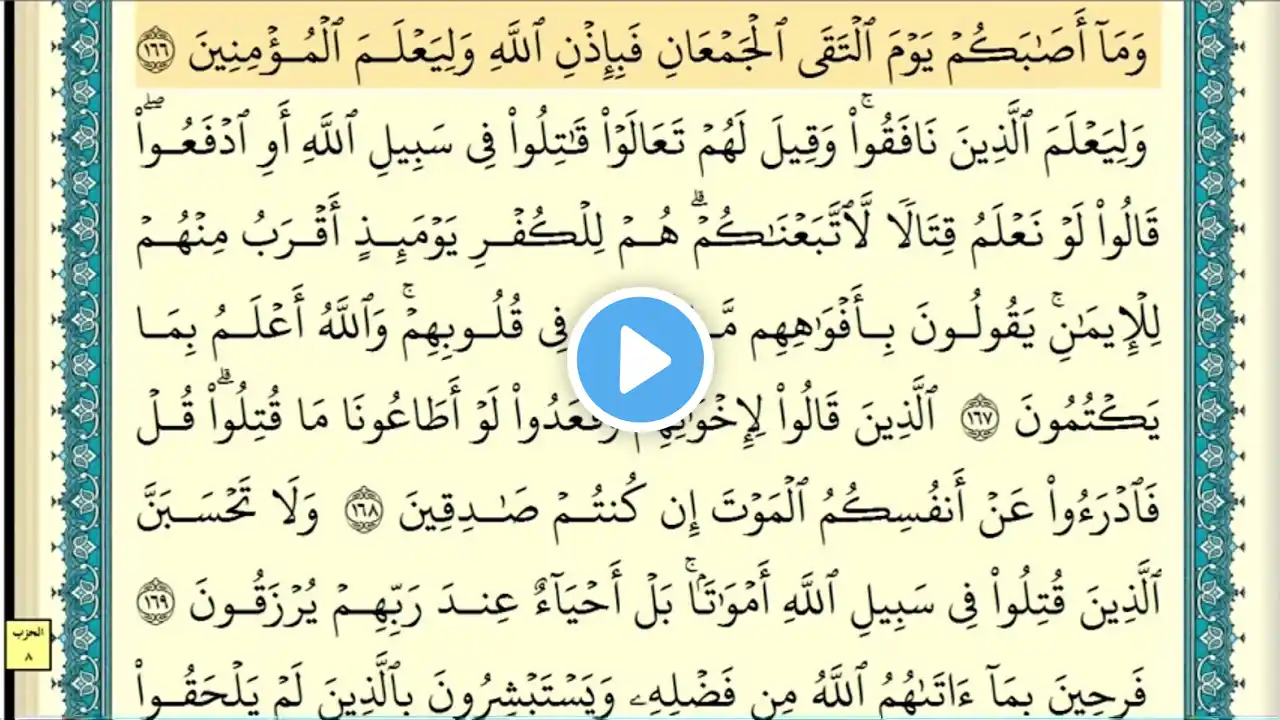 وَمَآ أَصَٰبَكُمۡ يَوۡمَ ٱلۡتَقَى ٱلۡجَمۡعَانِ فَبِإِذۡنِ ٱللَّهِ وَلِيَعۡلَمَ ٱلۡمُؤۡمِنِينَ ١٦٦
وَلِيَعۡلَمَ ٱلَّذِينَ نَافَقُواْۚ وَقِيلَ لَهُمۡ تَعَالَوۡاْ قَٰتِلُواْ فِي سَبِيلِ ٱللَّهِ أَوِ ٱدۡفَعُواْۖ
قَالُواْ لَوۡ نَعۡلَمُ قِتَالٗا لَّٱتَّبَعۡنَٰكُمۡۗ هُمۡ لِلۡكُفۡرِ يَوۡمَئِذٍ أَقۡرَبُ مِنۡهُمۡ
لِلۡإِيمَٰنِۚ يَقُولُونَ بِأَفۡوَٰهِهِم فِي قُلُوبِهِمۡۚ وَٱللَّهُ أَعۡلَمُ بِمَا
يَكۡتُمُونَ ١٦٧ ٱلَّذِينَ قَالُواْ لِإِخۡوَٰنِهِمۡ وَقَعَدُواْ لَوۡ أَطَاعُونَا مَا قُتِلُواْۗ قُلۡ
فَٱدۡرَءُواْ عَنۡ أَنفُسِكُمُ ٱلۡمَوۡتَ إِن كُنتُمۡ صَٰدِقِينَ ١٦٨ وَلَا تَحۡسَبَنَّ
ٱلَّذِينَ قُتِلُواْ فِي سَبِيلِ ٱللَّهِ أَمۡوَٰتَۢاۚ بَلۡ أَحۡيَآءٌ عِندَ رَبِّهِمۡ يُرۡزَقُونَ ١٦٩
فَرِحِينَ بِمَآ ءَاتَىٰهُمُ ٱللَّهُ مِن فَضۡلِهِۦ وَيَسۡتَبۡشِرُونَ بِٱلَّذِينَ لَمۡ يَلۡحَقُواْ
الحزب
٨